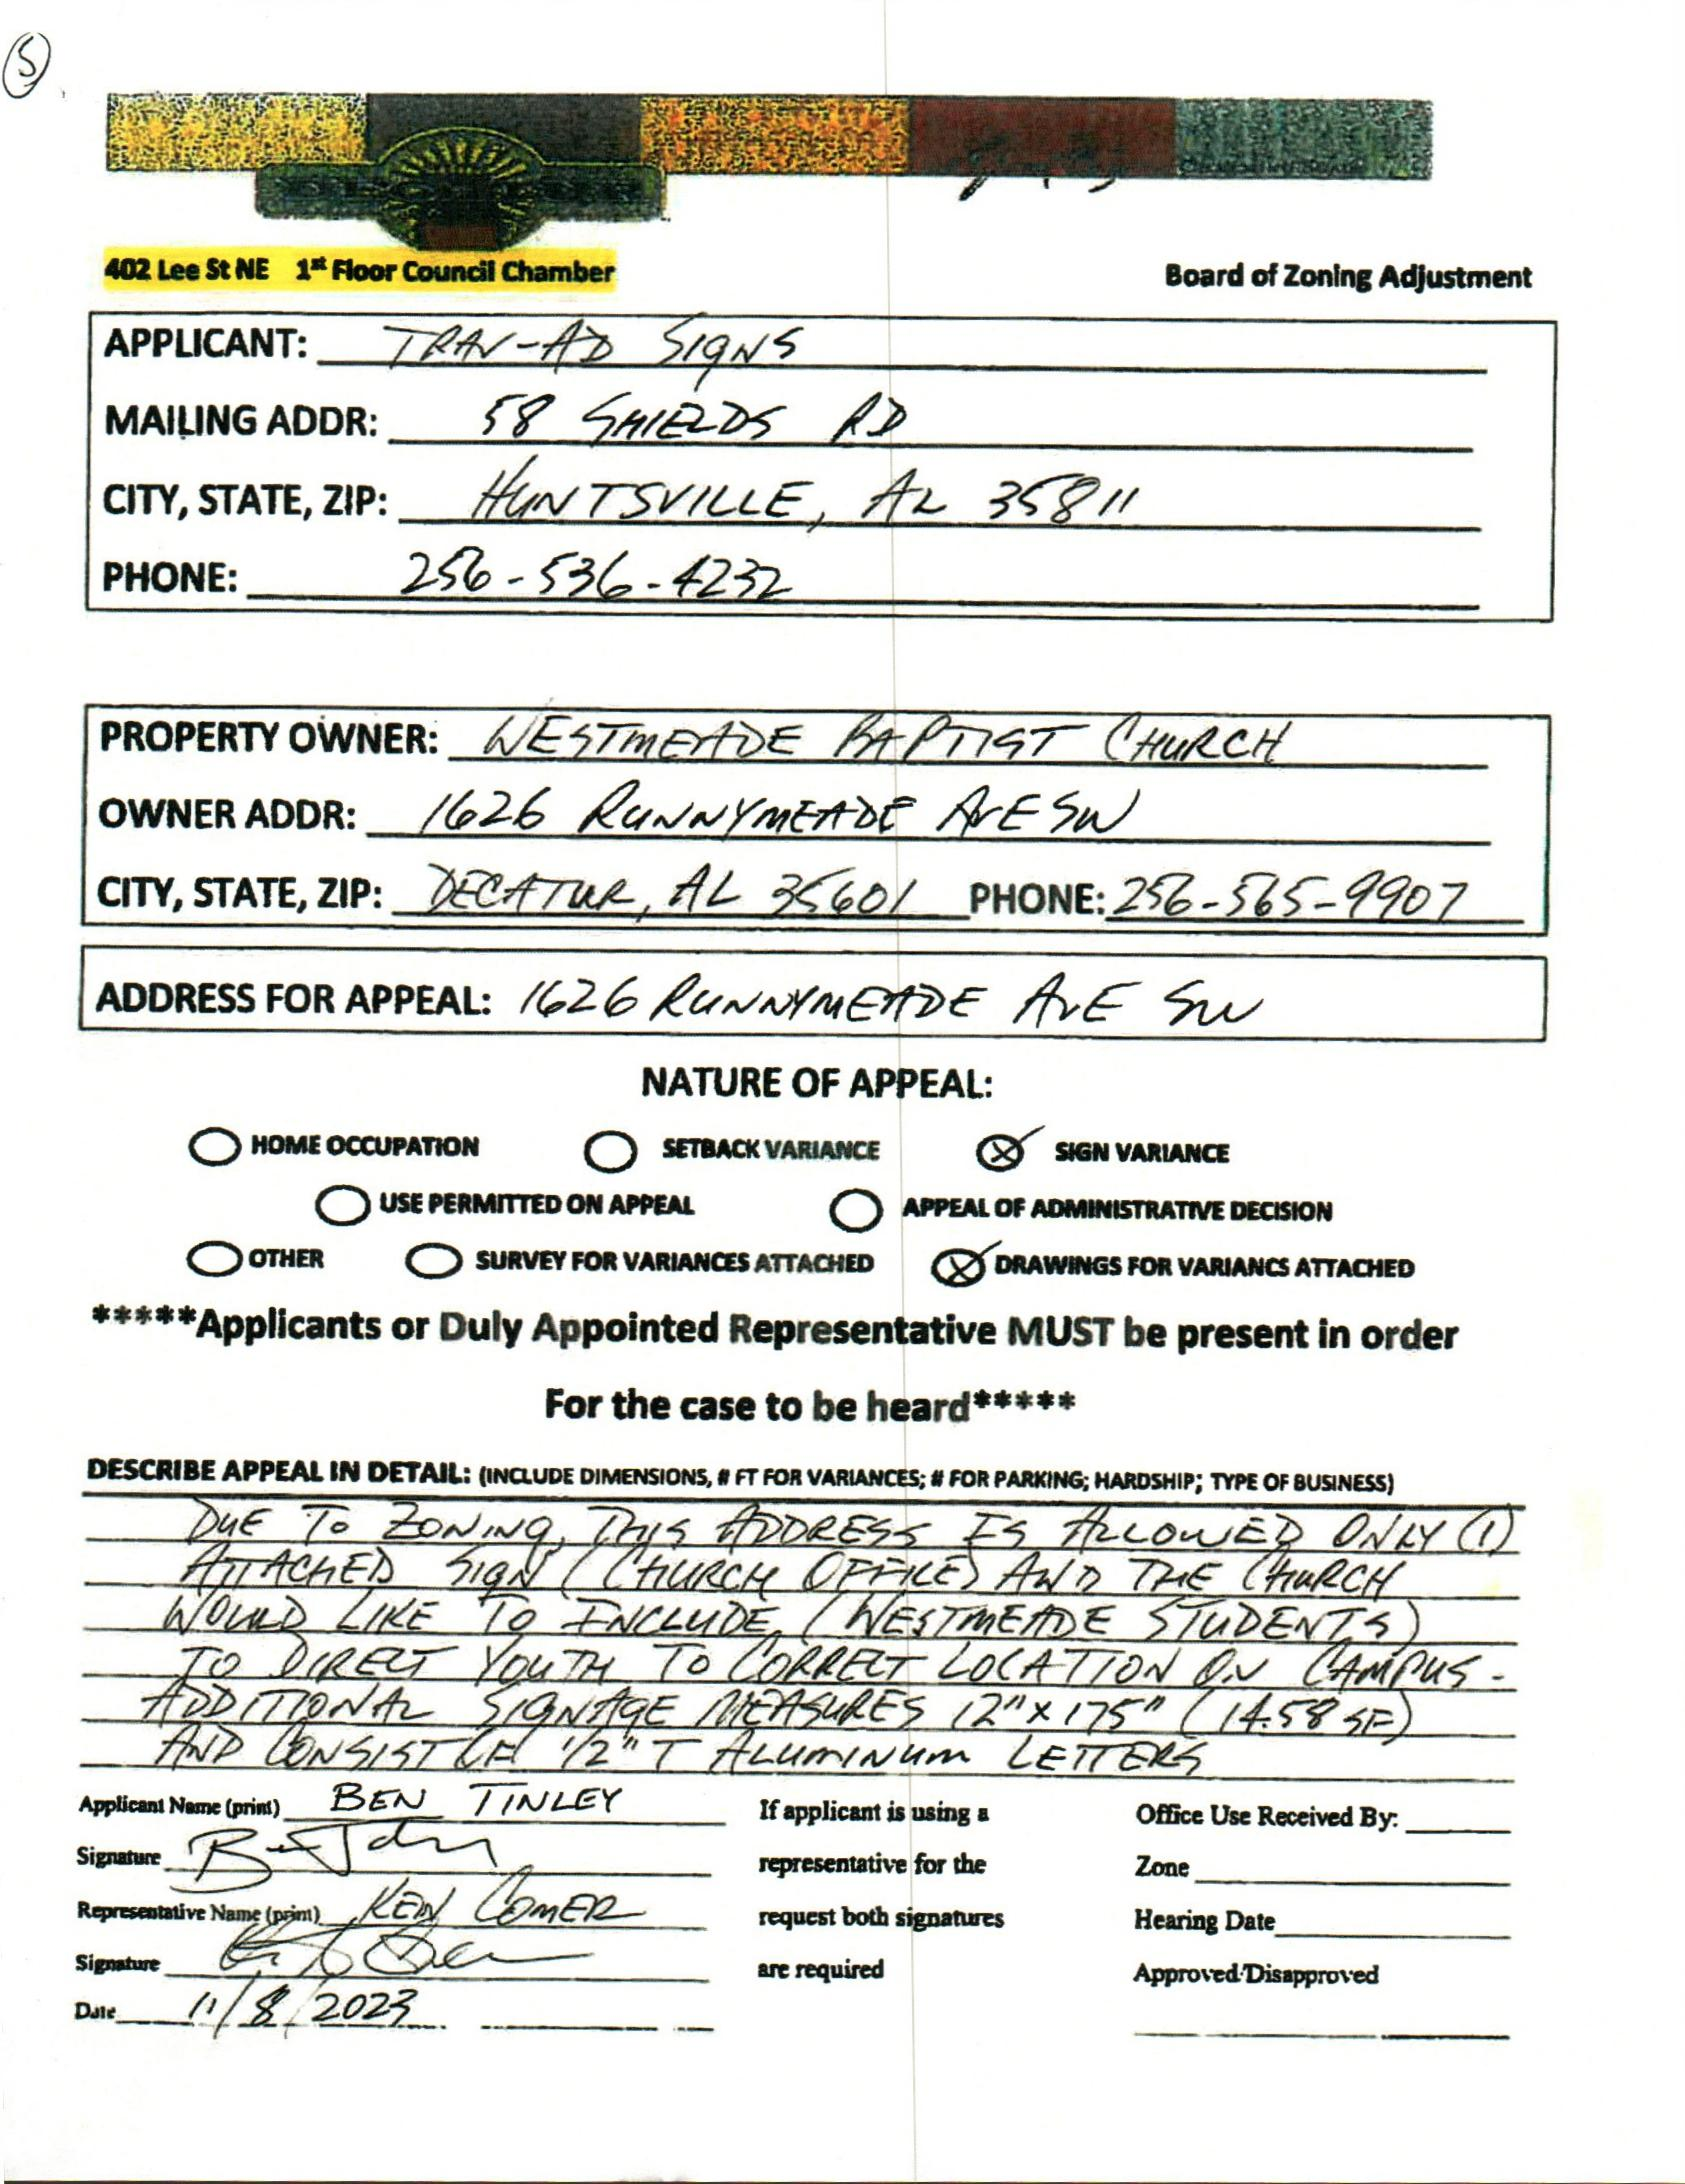 5
402 Lee St NE 1st Floor Council Chamber
Board of Zoning Adjustment
APPLICANT: TRAV-AD SIGNS
MAILING ADDR: 58 SHIELDS RD
CITY, STATE, ZIP: HUNTSVILLE, AL 35811
PHONE: 256-536-4232
PROPERTY OWNER: WESTMEADE BAPTIST CHURCH
OWNER ADDR: 1626 RUNNYMEADE AVE SW
CITY, STATE, ZIP: DECATUR, AL 35601 PHONE: 256-565-9907
ADDRESS FOR APPEAL: 1626 RUNNYMEADE AVE SW
NATURE OF APPEAL:
HOME OCCUPATION SETBACK VARIANCE SIGN VARIANCE
USE PERMITTED ON APPEAL APPEAL OF ADMINISTRATIVE DECISION
OTHER SURVEY FOR VARIANCES ATTACHED DRAWINGS FOR VARIANCS ATTACHED
*****Applicants or Duly Appointed Representative MUST be present in order
For the case to be heard*****
DESCRIBE APPEAL IN DETAIL: (INCLUDE DIMENSIONS, # FT FOR VARIANCES; # FOR PARKING; HARDSHIP; TYPE OF BUSINESS)
DUE TO ZONING, THIS ADDRESS IS ALLOWED ONLY (1)
ATTACHED SIGN (CHURCH OFFICE) AND THE CHURCH
WOULD LIKE TO INCLUDE (WESTMEADE STUDENTS)
TO DIRECT YOUTH TO CORRECT LOCATION ON CAMPUS-
ADDITIONAL SIGNAGE MEASURES 12" X 175" (14.58 SF)
AND CONSIST OF 1/2" T ALUMINUM LETTERS
Applicant Name (print) BEN TINLEY If applicant is using a Office Use Received By:
Signature representative for the Zone
Representative Name (print) KEN COMER request both signatures Hearing Date
Signature are required Approved/Disapproved
Date 11/8/2023